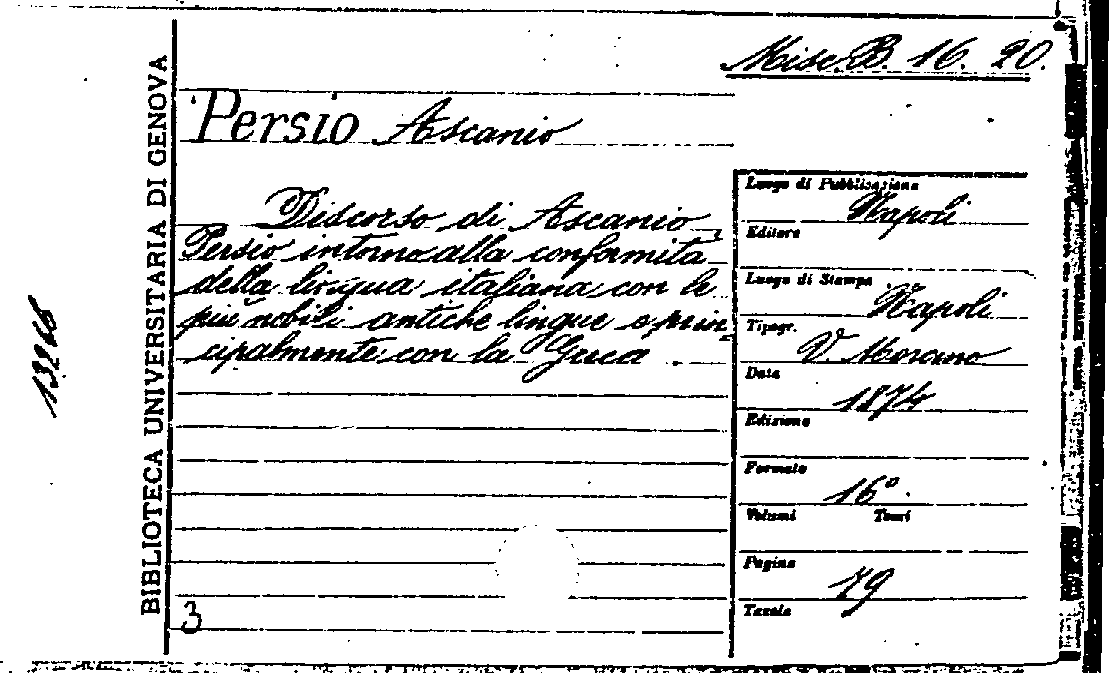 Misc. B. 16. 20.
Persio Ascanio
Discorso di Ascanio
Persio intorno alla conformità
della lingua italiana con le
più nobili antiche lingue e prin
cipalmente con la Greca.
3
BIBLIOTECA UNIVERSITARIA DI GENOVA
Luogo di Pubblicazione
Napoli
Editore
Luogo di Stampa
Napoli
Tipogr.
V. Morano
Data
1874
Edizione
Formato
16°.
Volumi Tomi
Pagine
79
Tavole